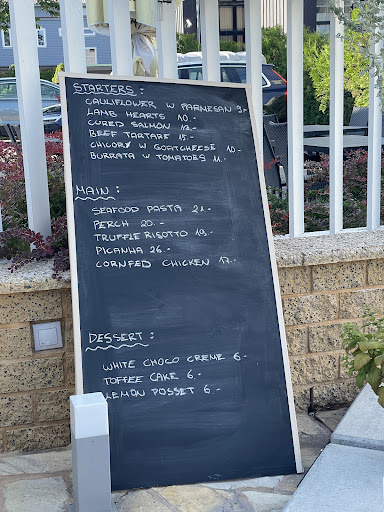 STARTERS :
CAULIFLOWER W PARMESAN 9.-
LAMB HEARTS 10.-
CURED SALMON 12.-
BEEF TARTARE 15.-
CHICORY W GOATCHEESE 10.-
BURRATA W TOMATOES 11.-
MAIN :
SEAFOOD PASTA 21.-
PERCH 20.-
TRUFFLE RISOTTO 19.-
PICANHA 26.-
CORNFED CHICKEN 17.-
DESSERT :
WHITE CHOCO CREME 6.-
TOFFEE CAKE 6.-
LEMON POSSET 6.-